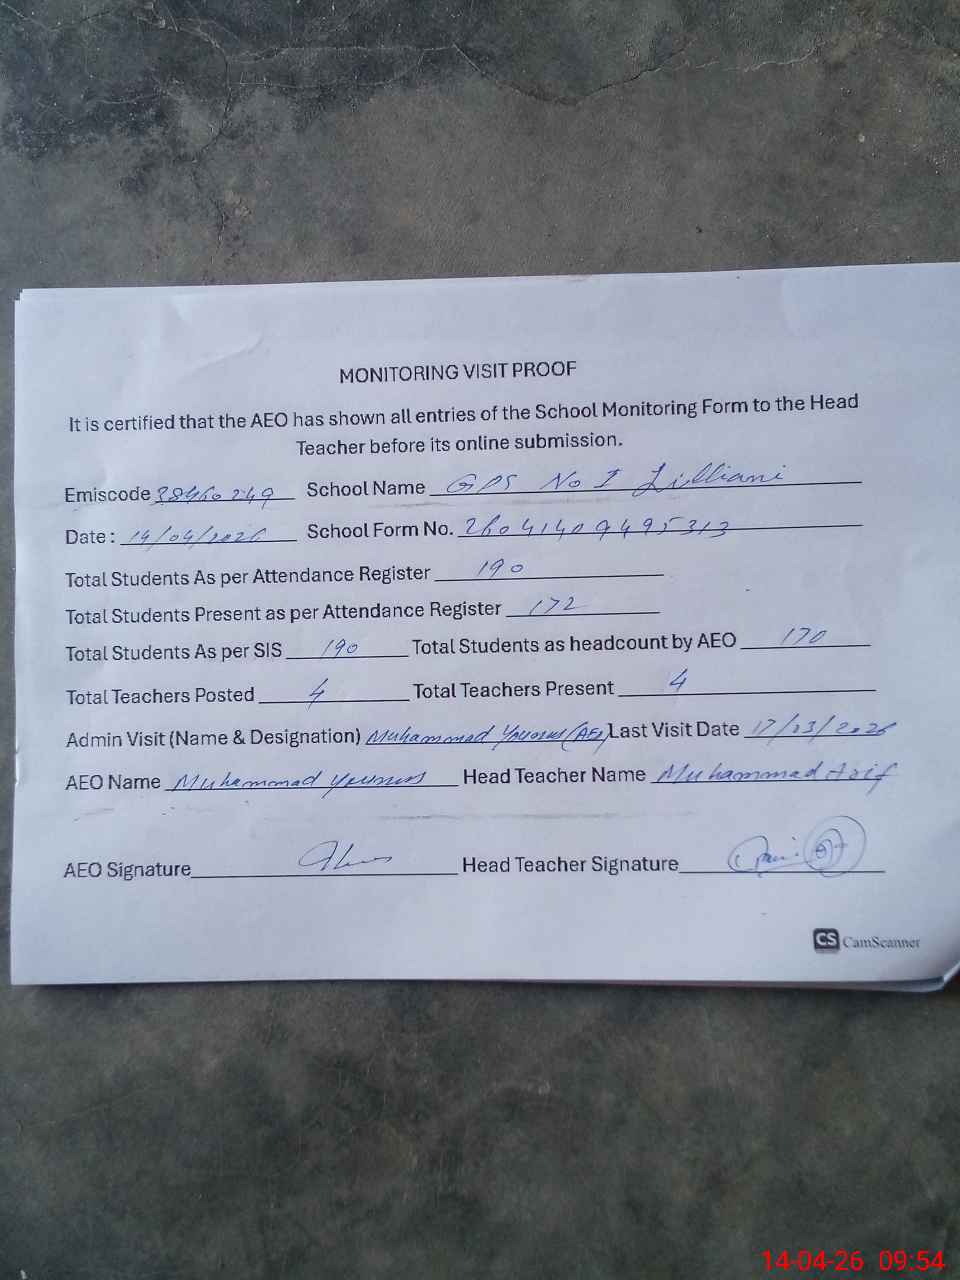 MONITORING VISIT PROOF
It is certified that the AEO has shown all entries of the School Monitoring Form to the Head
Teacher before its online submission.
Emiscode 38460249 School Name GPS No I Lilliani
Date: 14/04/2026 School Form No. 26041409495313
Total Students As per Attendance Register 190
Total Students Present as per Attendance Register 172
Total Students As per SIS 190 Total Students as headcount by AEO 170
Total Teachers Posted 4 Total Teachers Present 4
Admin Visit (Name & Designation) Muhammad Younus (AEO) Last Visit Date 17/03/2026
AEO Name Muhammad Younus Head Teacher Name Muhammad Arif
AEO Signature Head Teacher Signature
CS CamScanner
14-04-26 09:54